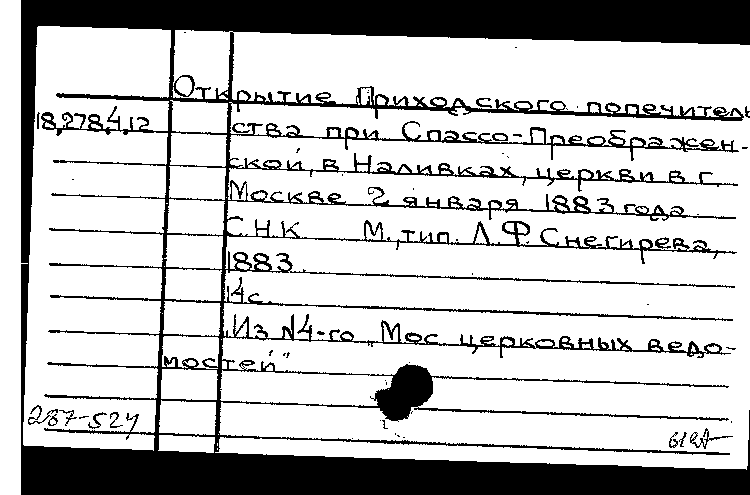 Открытие Приходского попечитель
18,278,4,12 ства при Спассо-Преображен-
ской, в Наливках, церкви в г.
Москве 2 января 1883 года
С.Н.К М., тип. Л.Ф. Снегирева,
1883.
14с.
Из N4-го „Мос. церковных ведо-
мостей"
287-524